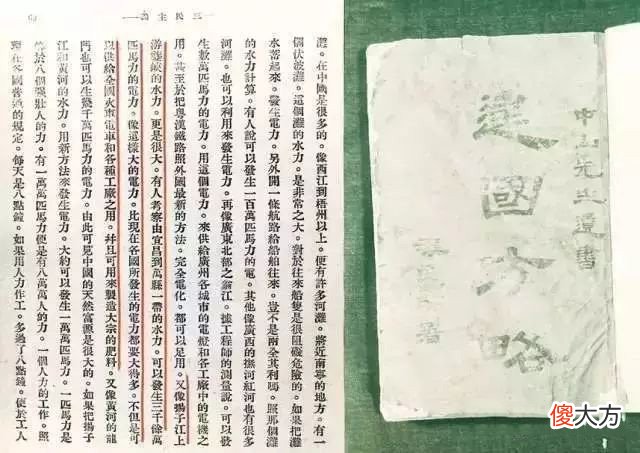 三民主義
灘。在中國是很多的。像西江到梧州以上。便有許多河灘。將近南寧的地方。有一
個伏波灘。這個灘的水力。是非常之大。對於往來船隻是很阻礙危險的。如果把灘
水蓄起來。發生電力。另外開一條航路給船舶往來。豈不是兩全其利嗎。照那個灘
的水力計算。有人說可以發生一百萬匹馬力的電。其他像廣西的撫河紅河也有很多
河灘。也可以利用來發生電力。再像廣東北部之翁江。據工程師的測量說。可以發
生數萬匹馬力的電力。用這個電力。來供給廣州各城市的電燈和各工廠中的電機之
用。甚至於把粵漢鐵路照外國最新的方法。完全電化。都可以足用。又像揚子江上
游夔峽的水力。更是很大。有人考察由宜昌到萬縣一帶的水力。可以發生三千餘萬
匹馬力的電力。像這樣大的電力。比現在各國所發生的電力都要大得多。不但是可
以供給全國火車電車和各種工廠之用。幷且可用來製造大宗的肥料。又像黃河的龍
門也可以生幾千萬匹馬力的電力。由此可見中國的天然富源是很大的。如果把揚子
江和黃河的水力。用新方法來發生電力。大約可以發生一萬萬匹馬力。一匹馬力是
等於八個強壯人的力。有一萬萬匹馬力便是有八萬萬人的力。一個人力的工作。照
現在各國普通的規定。每天是八點鐘。如果用人力作工。多過了八點鐘。便於工人
中山先生遺書
建國方略
著
傻大方